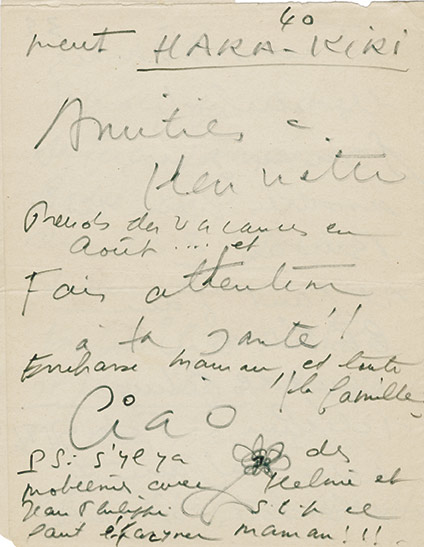 40
ment HARA-KIRI
Amitiés à
Henriette
Prends des vacances en
Août .... et
Fais attention
à ta santé!!
Embrasse maman, et toute
la famille
Ciao
PS: s'yl ya des
problemes avec Helene et
Jean Philippe S.t.p
faut épargner maman!!!